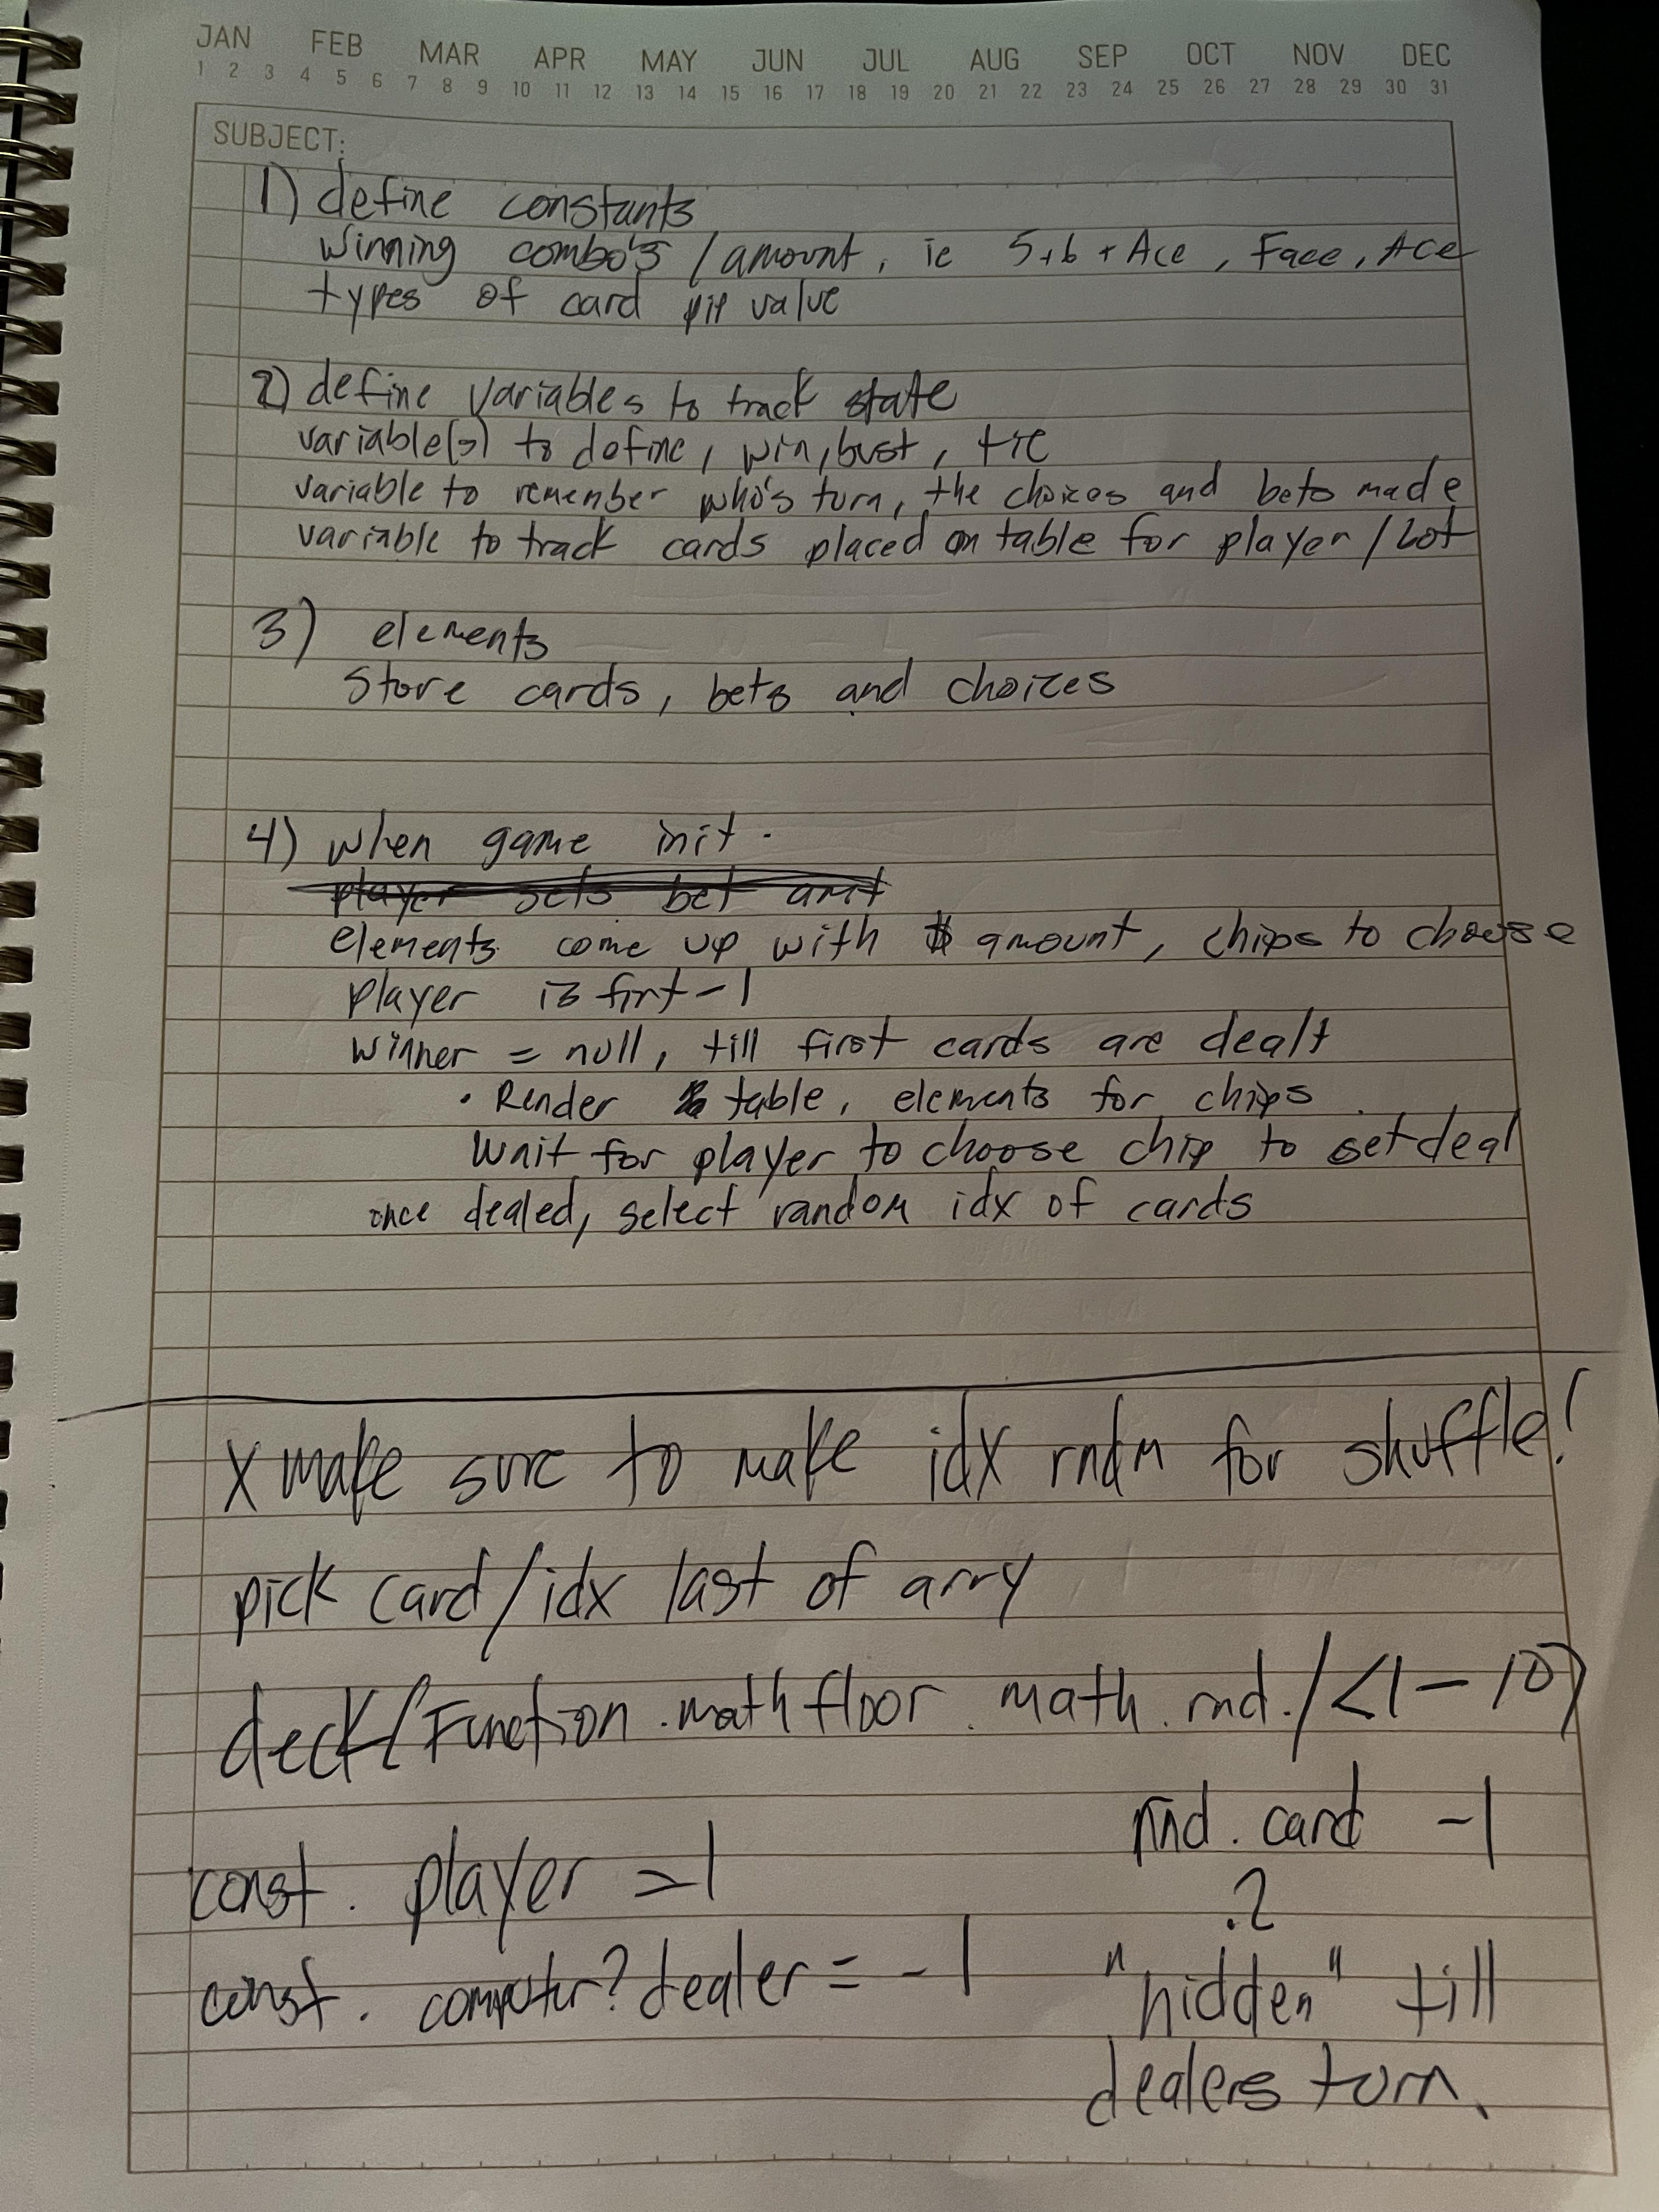 JAN FEB MAR APR MAY JUN JUL AUG SEP OCT NOV DEC
1 2 3 4 5 6 7 8 9 10 11 12 13 14 15 16 17 18 19 20 21 22 23 24 25 26 27 28 29 30 31
SUBJECT:
1) define constants
winning combo's / amount, ie 5+6 + Ace, Face, Ace
types of card pip value
2) define variables to track state
variable(s) to define, win, bust, tie
variable to remember who's turn, the choices and bets made
variable to track cards placed on table for player / bot
3) elements
Store cards, bets and choices
4) when game init.
player sets bet amt
elements come up with $ amount, chips to choose
player is firt -1
winner = null, till first cards are dealt
• Render table, elements for chips
Wait for player to choose chip to set deal
once dealed, select random idx of cards
X make sure to make idx rndm for shuffle!
pick card/idx last of arry
deck(Function.mathfloor.math.rnd./<1-10)
rnd. card -1
const. player = 1
?
const. computer? dealer = -1
"hidden" till
dealers turn.